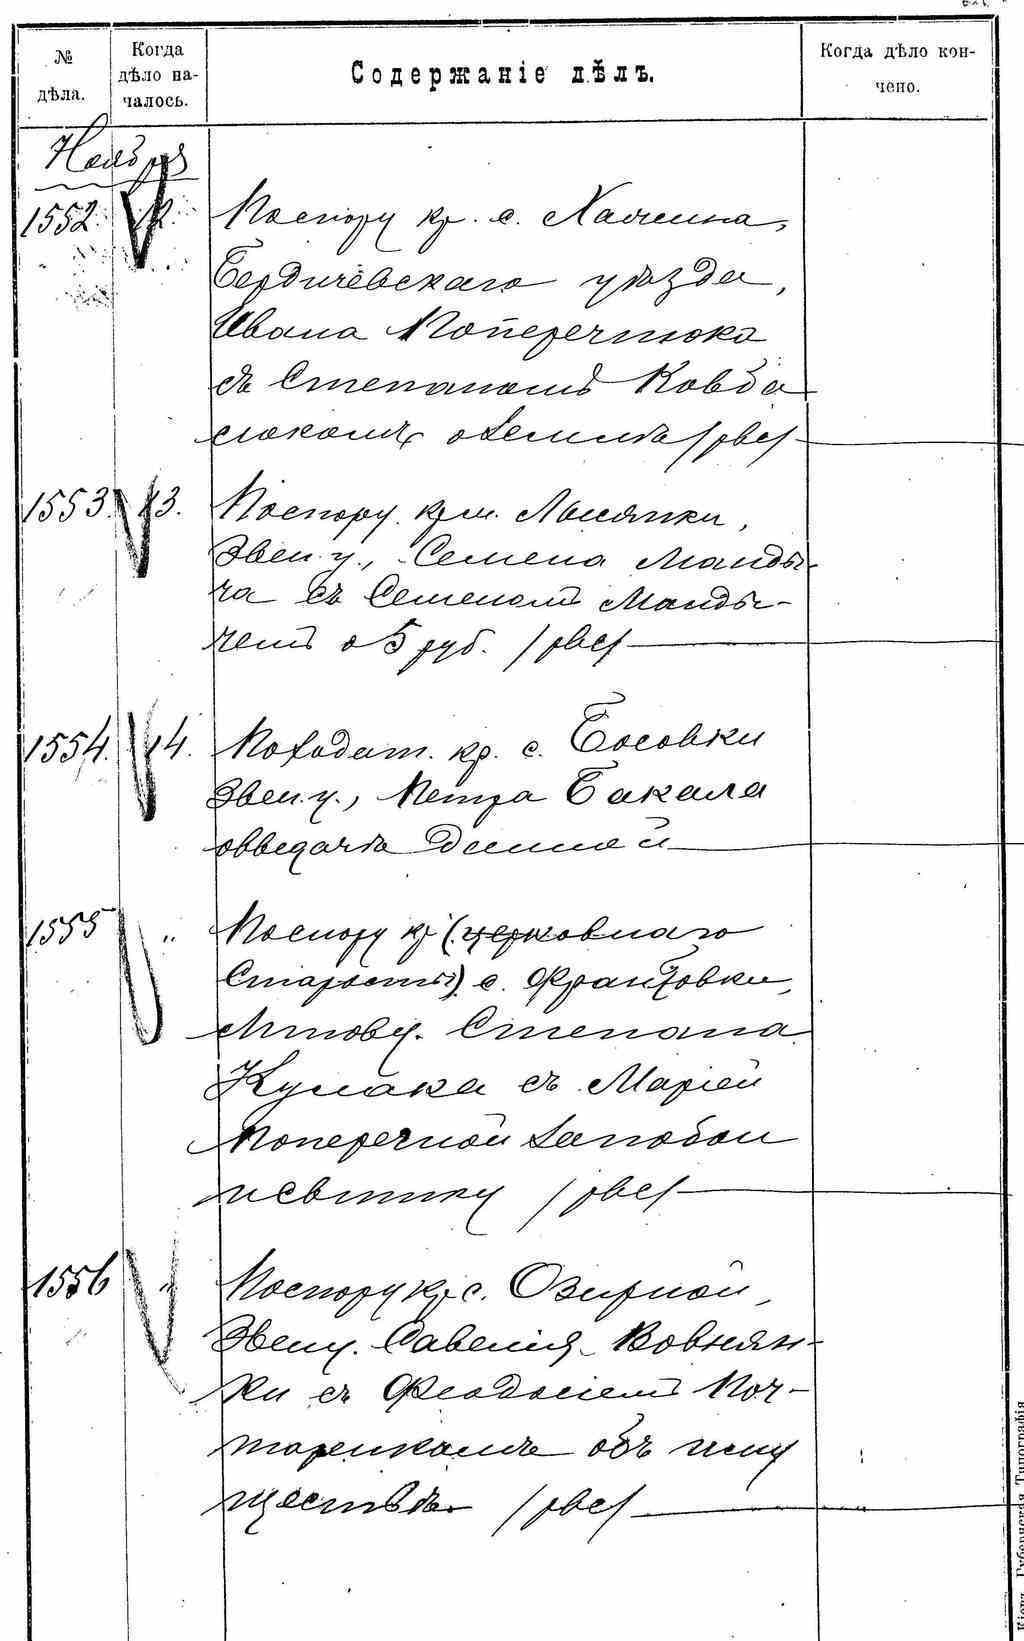 № дѣла.
Когда дѣло на-
чалось.
Содержаніе дѣлъ.
Когда дѣло кон-
чено.
Ноября
1552. 12. По спору кр. с.
Бердичевскаго уѣзда,
Ивана Поперечнюка
съ Степаномъ Ковба
сюкомъ о землѣ
1553. 13. По спору кр. м. Лысянки,
Звен. у., Семена Манды-
ча съ Семеномъ Манды-
чемъ о 5 руб.
1554. 14. По ходат. кр. с. Босовки
Звен. у., Петра Бакала
о выдачѣ
1555 „ По спору кр. (церковнаго
Старосты) с. Франтовки,
Липов. у. Степана
Кулака съ Маріей
Поперечной за побои
и свитку
1556 „ По спору кр. с. Озирной,
Звен. у. Савелія Вовнян-
ки съ Феодосіемъ Поч-
таренкомъ объ иму
ществѣ.
Кіевъ. Губернская Типографія